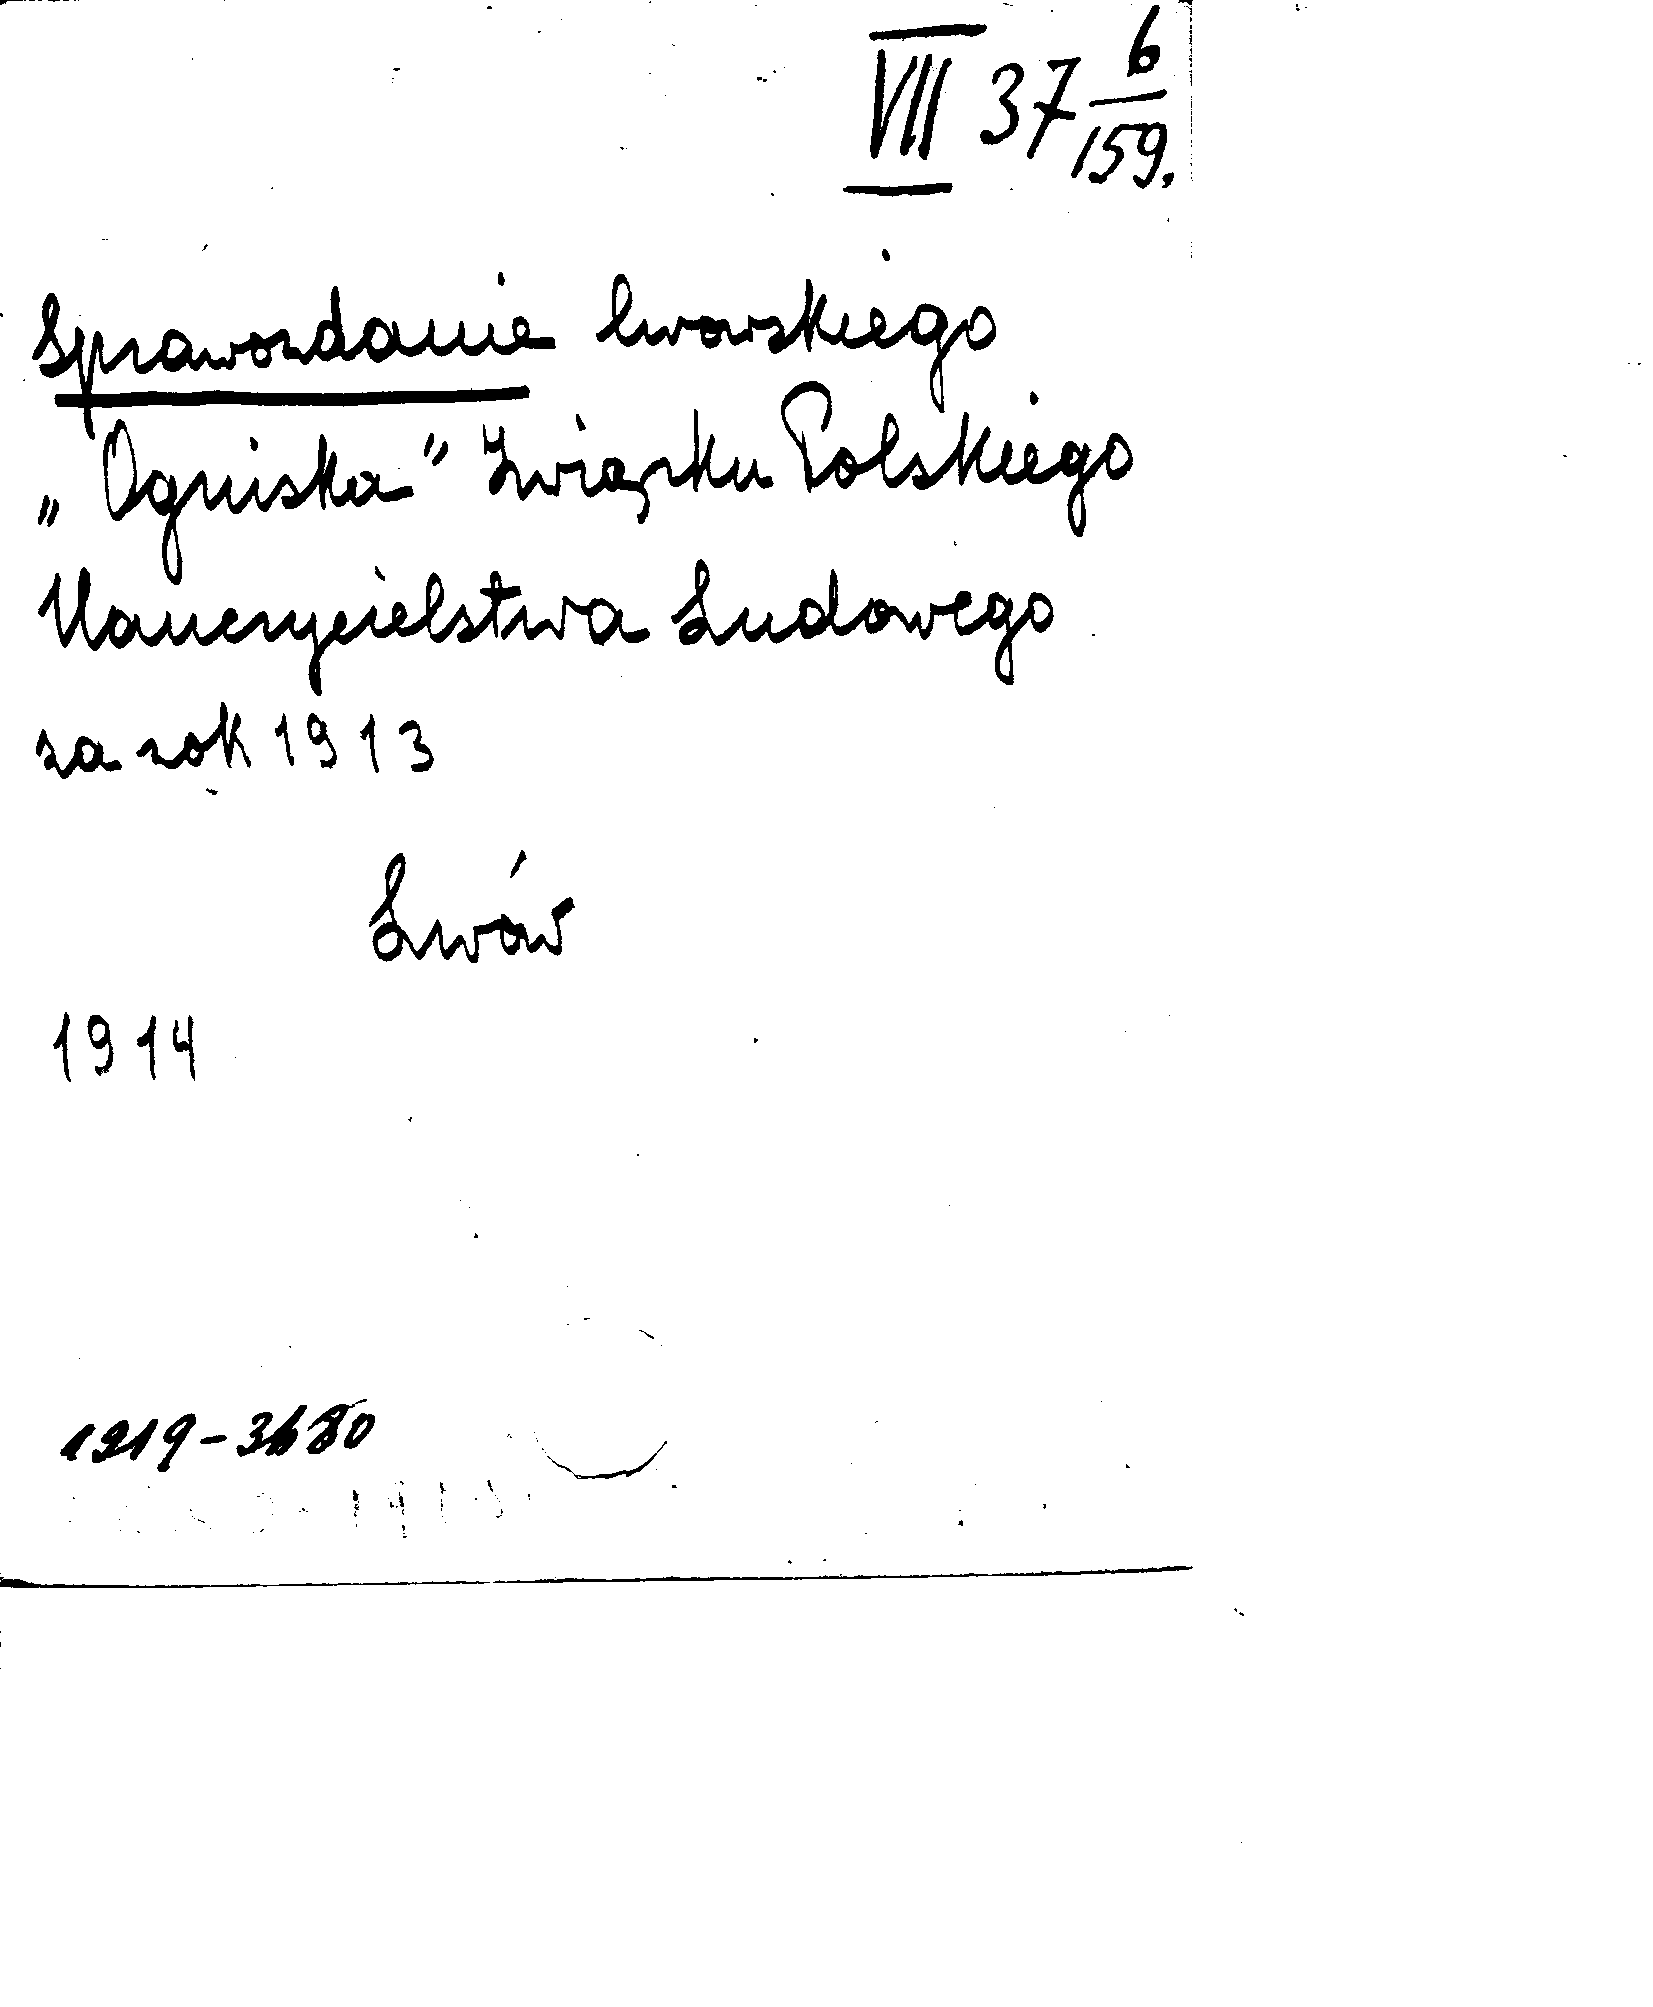 VII 37 6/159.
Sprawozdanie lwowskiego
„Ogniska" Związku Polskiego
Nauczycielstwa Ludowego
za rok 1913
Lwów
1914
1919-3680